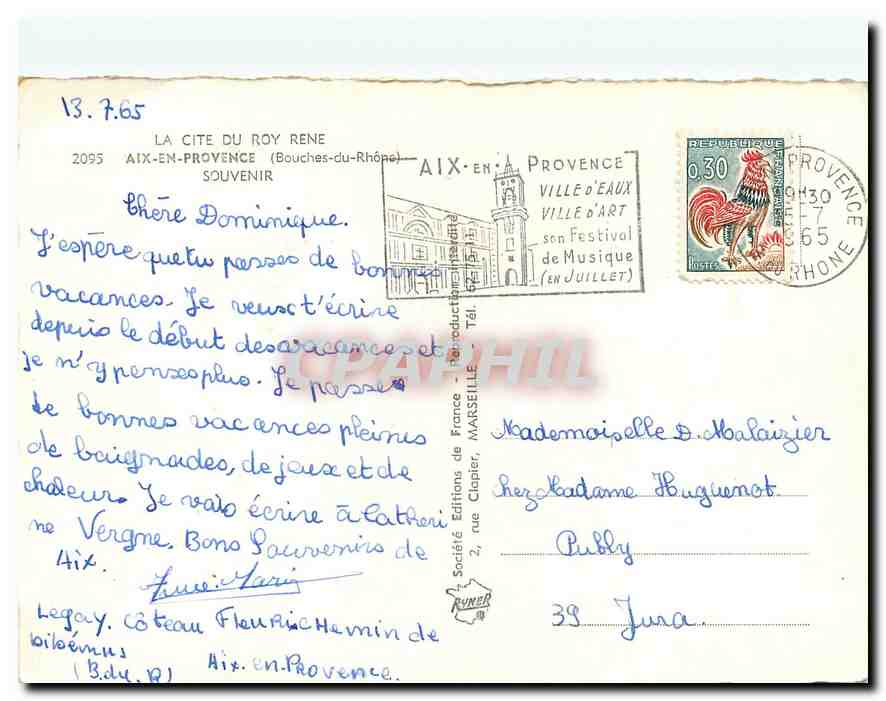 13.7.65
LA CITE DU ROY RENE
2095 AIX-EN-PROVENCE (Bouches-du-Rhône)
SOUVENIR
Chère Dominique.
J'espère que tu passes de bonnes
vacances. Je veux t'écrire
depuis le début des vacances et
je n'y penses plus. Je passe
de bonnes vacances pleines
de baignades, de jeux et de
chaleur. Je vais écrire à Catheri
ne Vergne. Bons Souvenirs de
Aix.
Anne-Marie
Legay. Côteau Fleuri chemin de
bibémus
(B.du.R) Aix-en-Provence.
AIX-EN-PROVENCE
VILLE D'EAUX
VILLE D'ART
son Festival
de Musique
(EN JUILLET)
REPUBLIQUE
FRANCAISE
0,30
POSTES
PROVENCE
9H30
-7
1965
RHONE
Société Editions de France - Reproduction interdite
2, rue Clapier, MARSEILLE - Tél. 62-15-11
RYNER
CPAPHIL
Mademoiselle D. Malaizier
chez Madame Huguenot
Publy
39 Jura.